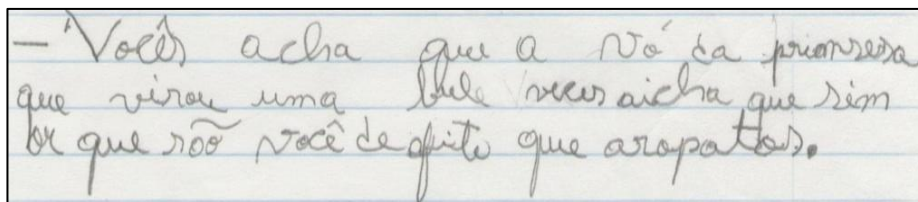 — Vocês acha que a vó da prionsesa
que virou uma bule veces aicha que sim
por que não você de que